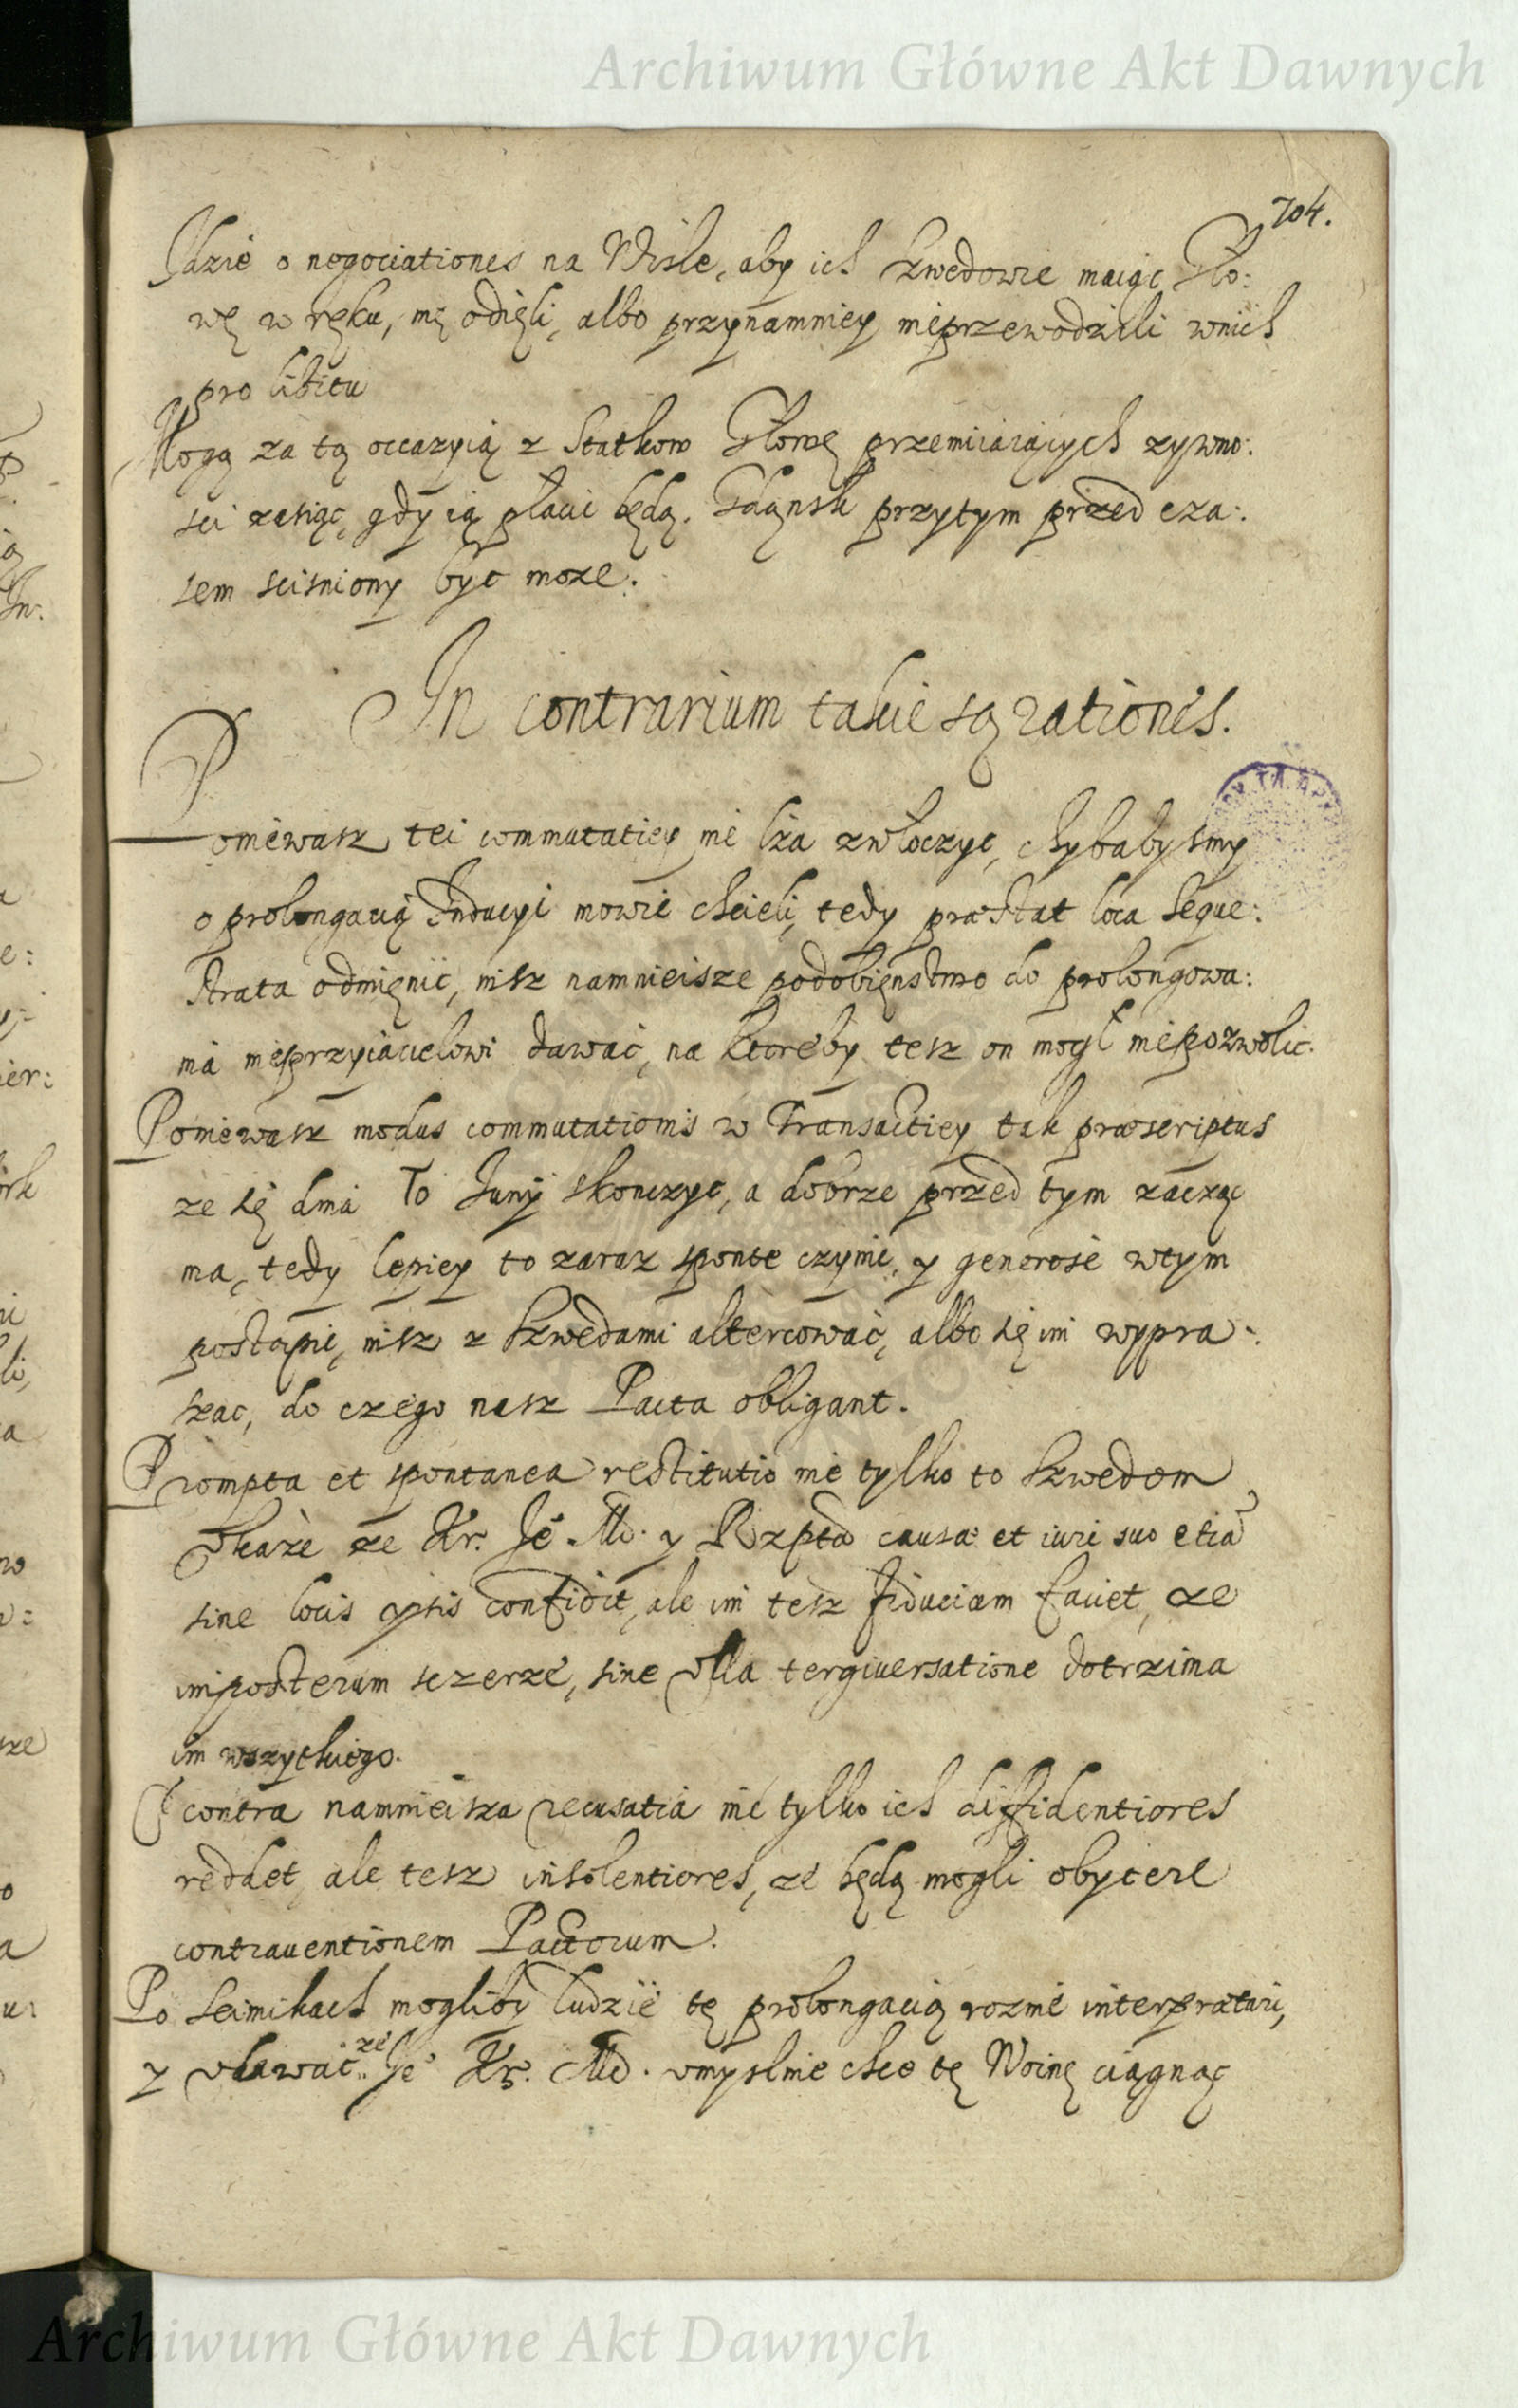 Archiwum Główne Akt Dawnych
704.
Jdzie o negociationes na Wisle, aby ich Szwedowie maiąc Gło:
wę w ręku, nię odięli, albo przynamniey nieprzewodzili wnich
pro libitu
Mogą za tą occazyią z Statkow Głowę przemiiaiących zywno:
sci zasiąc, gdy ią płacic będą. Gdąnsk przytym przed cza:
sem scisniony być moze.
In contrarium takie są rationes.
Poniewasz tei commutatiey nie lża zwłoczyć, chybabysmy
o prolongacią Inducyi mowić chcieli, tedy præstat loca Seque:
strata odmięnić, nisz namnieisze podobięnstwo do prolongowa:
nia nieprzyiacielowi dawać, na ktoreby tesz on mogł niepozwolić.
Poniewasz modus commutationis w Transactiey tak præscriptus
ze się dnia 10 Junij skonczyć, a dobrze przed tym zacząc
ma, tedy lepiey to zaraz sponte czynić, y generose wtym
postąpić, nisz z Szwedami altercować, albo się im wypra:
szac, do czego nasz Pacta obligant.
Prompta et spontanea restitutio nie tylko to Szwedom
Vkaże ze Kr. Je˙ Mć. y Rzpta causæ et iuri suo etiã
sine locis ipsis confidit, ale im tesz fiduciam faciet, ze
imposterum sczerze, sine vlla tergiuersatione dotrzima
im wszytkiego.
E contra namnieisza recusatia nie tylko ich diffidentiores
reddet, ale tesz insolentiores, ze będą mogli obycere
contrauentionem Pactorum.
Po Seimikach mogliby ludzie tę prolongacią roznie interpretari,
y vdawać ze Je˙ Kr. Mć. vmyslnie chce tę Woinę ciągnąc
Archiwum Główne Akt Dawnych